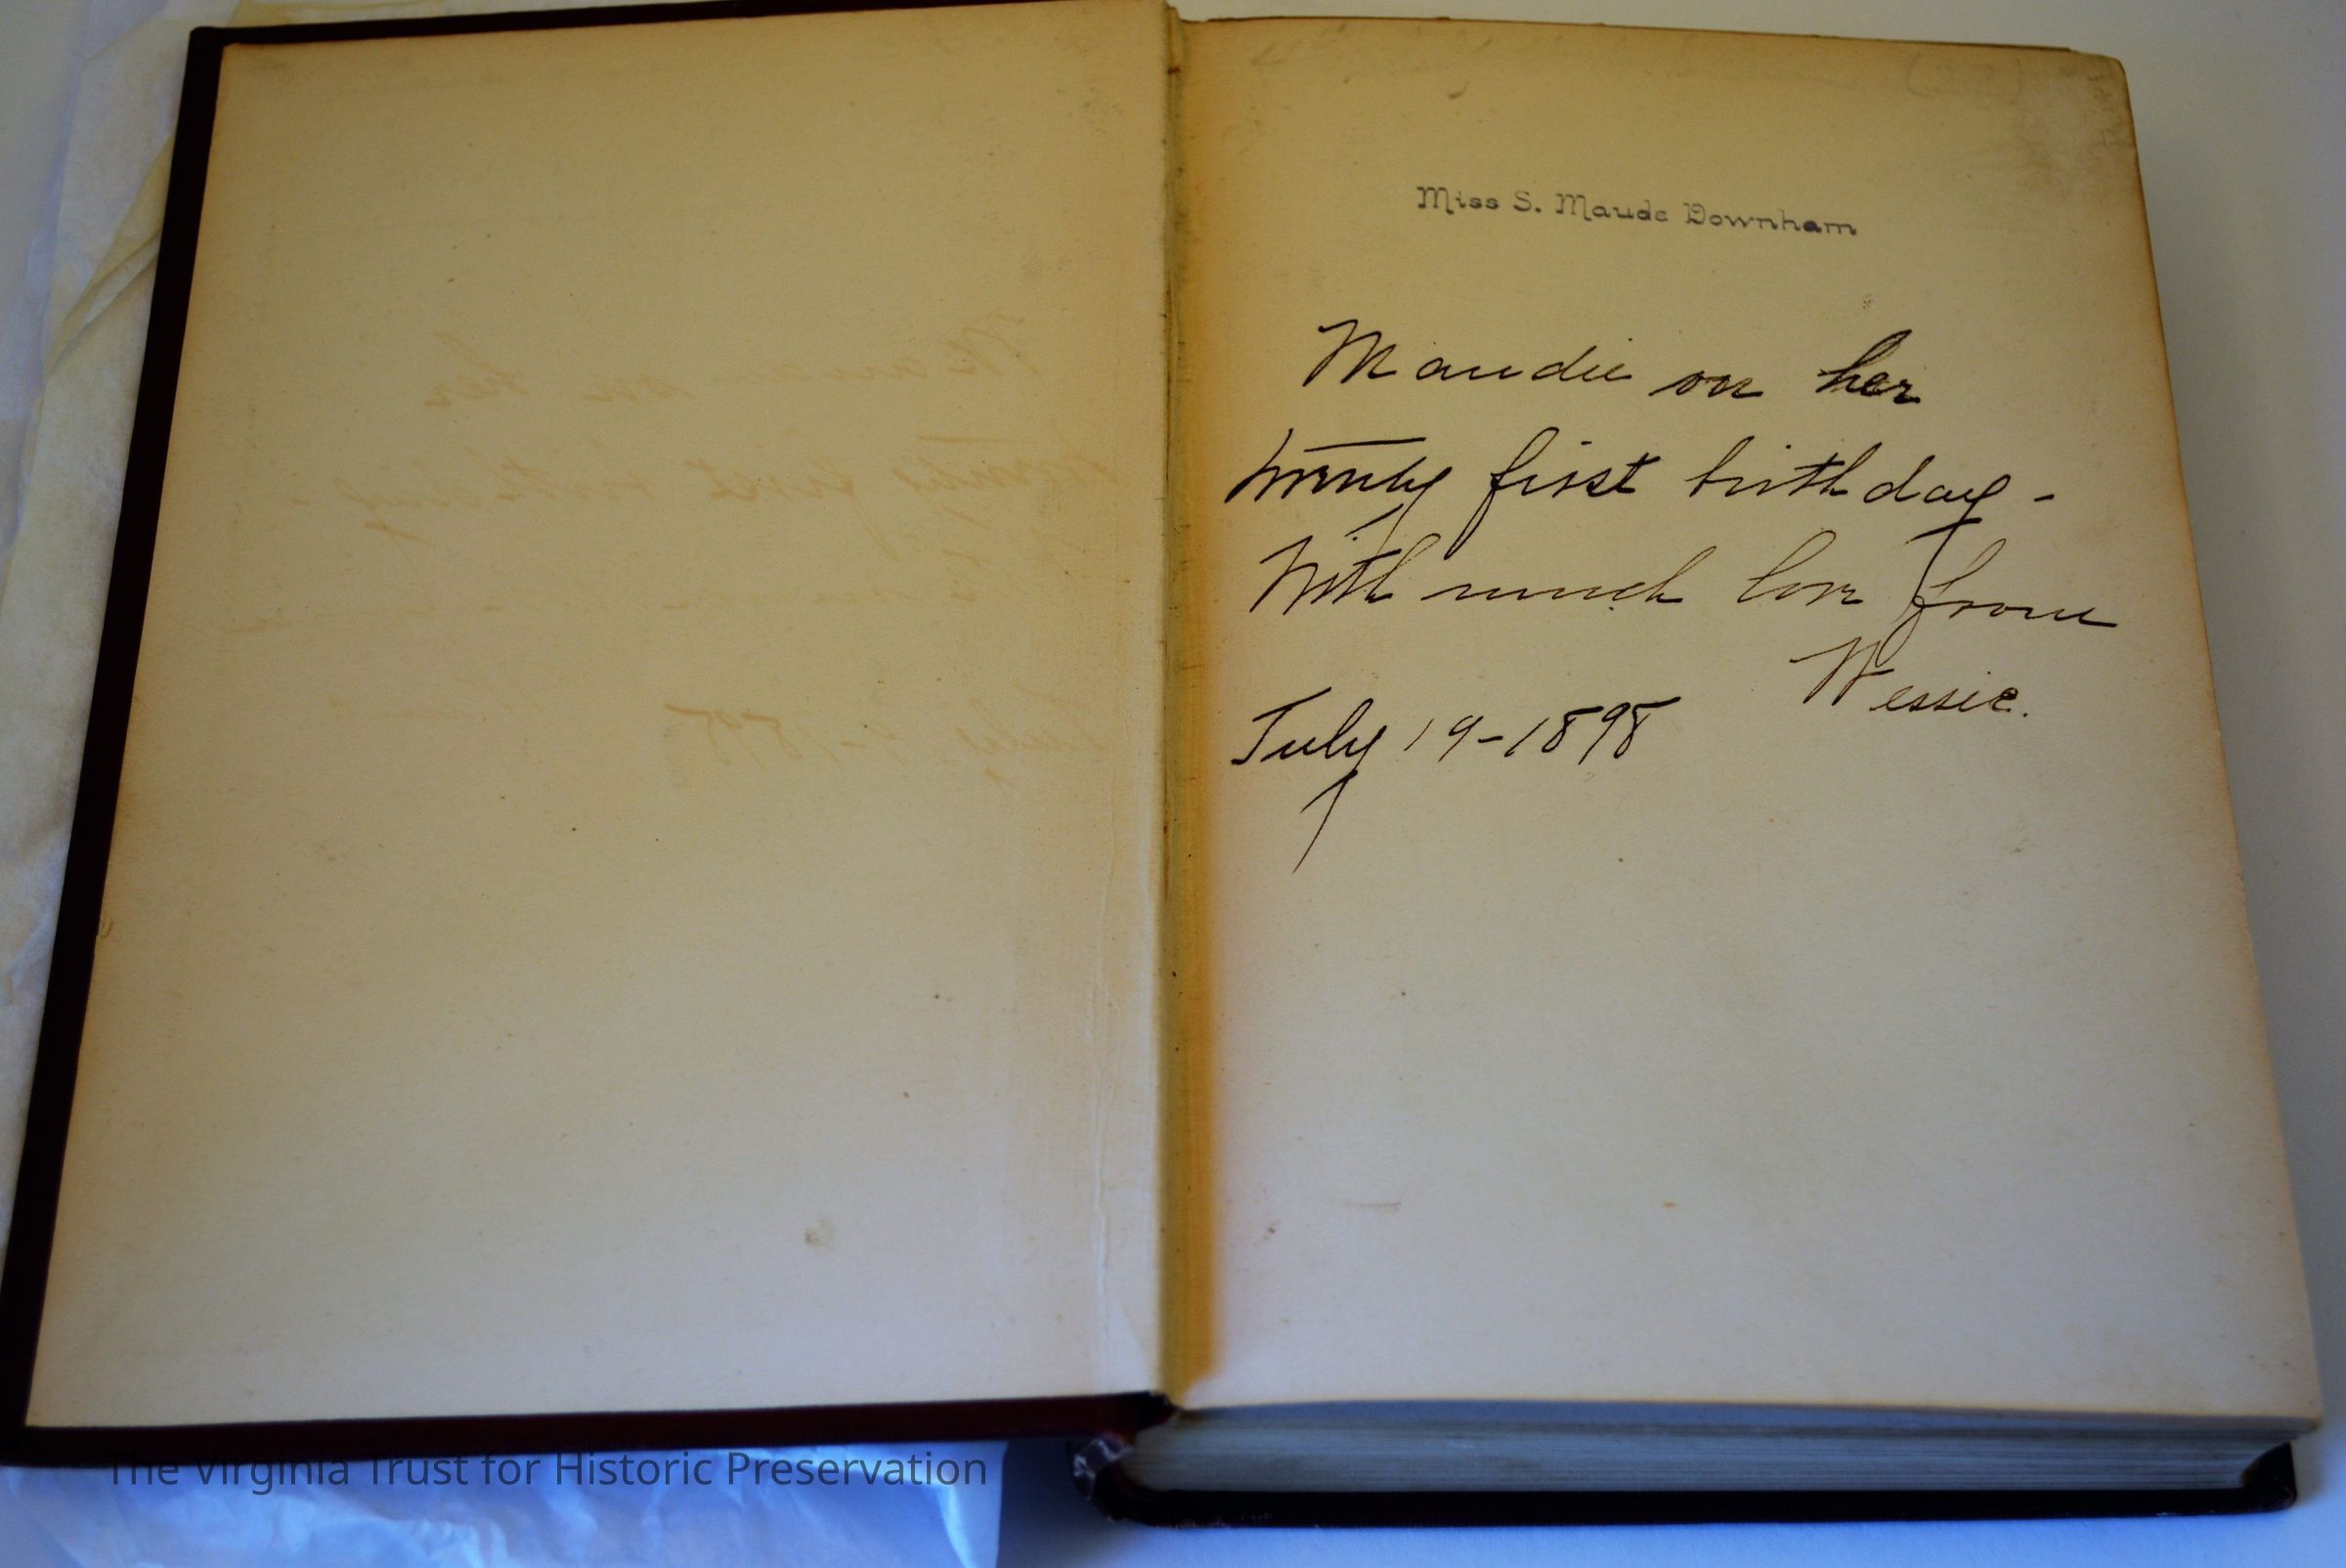 Miss S. Maude Downham
Maudie on her
twenty first birthday -
With much love from
Wessie.
July 19-1898
The Virginia Trust for Historic Preservation